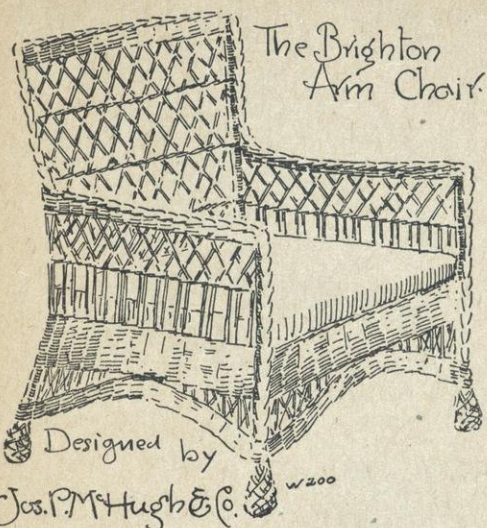 The Brighton
Arm Chair.
Designed by
Jos. P. McHugh & Co.
W200